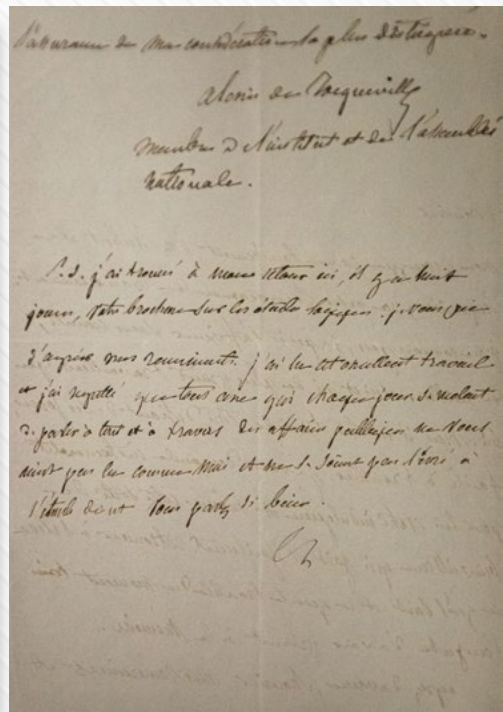 l'assurance de ma considération la plus distinguée.
alexis de Tocqueville
membre de l'institut et de l'assemblée
nationale.
P.S. j'ai trouvé à mon retour ici, il y a huit
jours, votre brochure sur les études logiques. je vous prie
d'agréer mes remerciments. j'ai lu cet excellent travail
et j'ai regretté que tous ceux qui chaque jour se mêlent
de parler à tort et à travers des affaires publiques ne vous
aient pas lu comme moi et ne se soient pas livré à
l'étude dont vous parlez si bien.